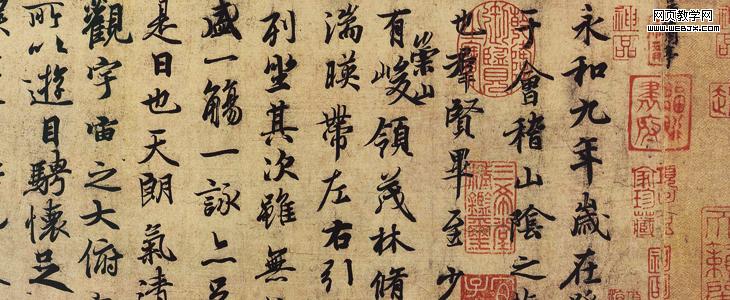 网页教学网
www.webjx.com
神品
永和九年歲在
于會稽山陰之
也羣賢畢至少
有崇山峻領茂林脩
湍暎帶左右引
列坐其次雖無
盛一觴一詠亦足
是日也天朗氣清
觀宇宙之大俯
所以遊目騁懷足
三希堂精鑑璽
家珍藏